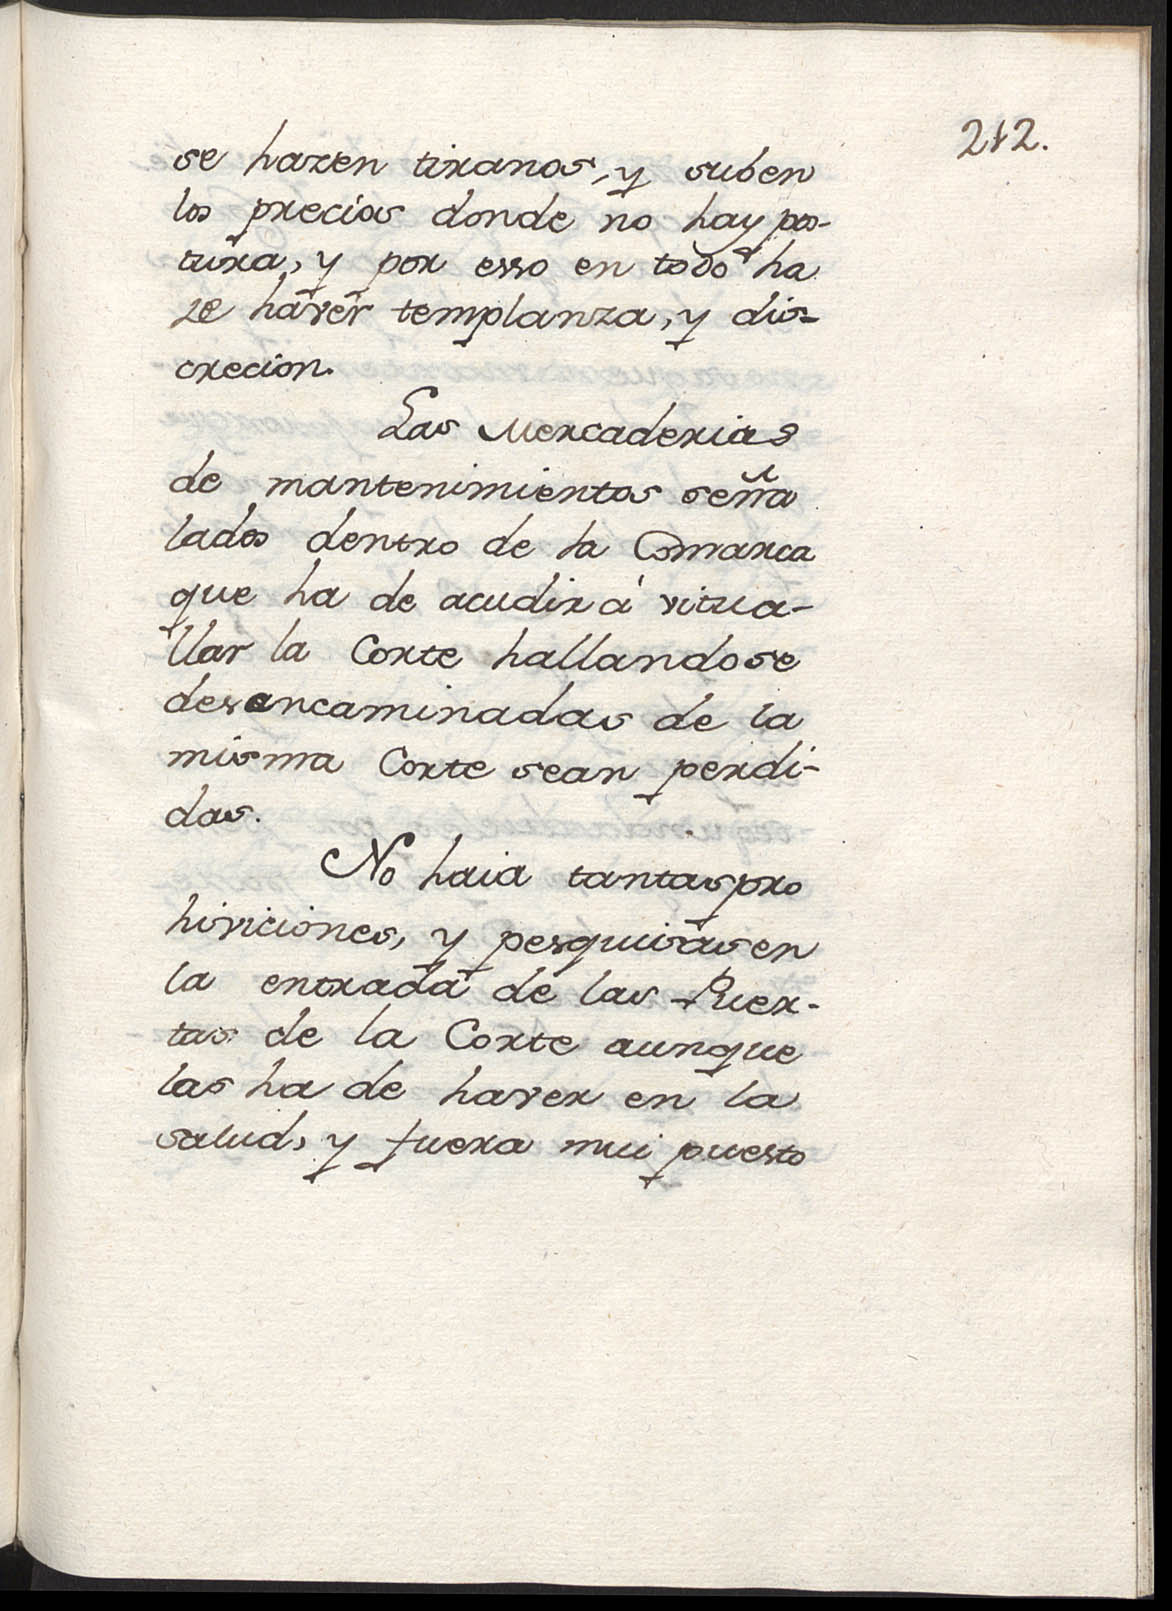 212.
se hazen tiranos, y suben
los precios donde no hay pos-
tura, y por esso en todo ha
de haver templanza, y dis-
crecion.
Las Mercaderias
de mantenimientos seña
lados dentro de la Comarca
que ha de acudir á vitua-
llar la Corte hallandose
desencaminadas de la
misma Corte sean perdi-
das.
No haia tantas pro
hiviciones, y pesquisas en
la entrada de las Puer-
tas de la Corte aunque
las ha de haver en la
salud, y fuera mui puesto